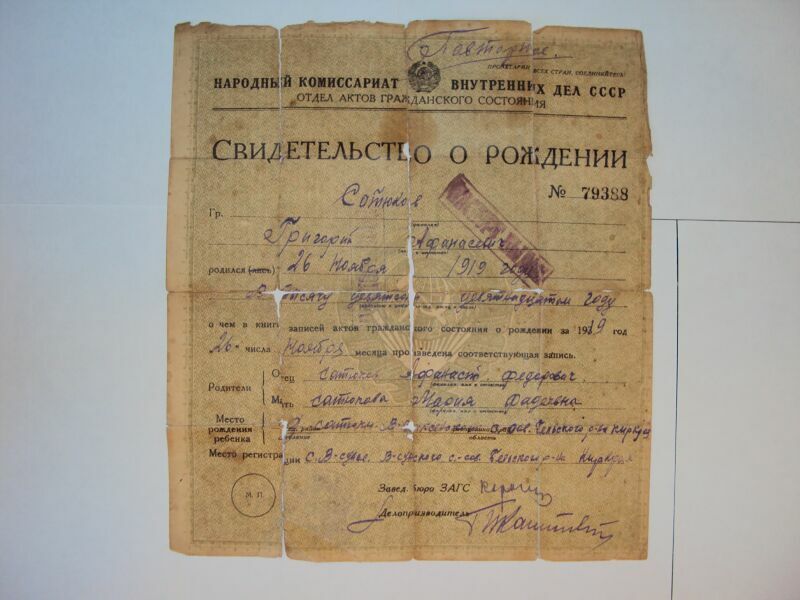 Повторное.
ПРОЛЕТАРИИ ВСЕХ СТРАН, СОЕДИНЯЙТЕСЬ!
НАРОДНЫЙ КОМИССАРИАТ ВНУТРЕННИХ ДЕЛ СССР
ОТДЕЛ АКТОВ ГРАЖДАНСКОГО СОСТОЯНИЯ
СВИДЕТЕЛЬСТВО О РОЖДЕНИИ
№ 79388
Гр. Сотюков
(фамилия)
Григорий Афанасьевич
(имя и отчество)
родился (лась) 26 Ноября 1919 года
В тысячу девятсот девятнадцатом году
о чем в книге записей актов гражданского состояния о рождении за 1919 год
26 числа Ноября месяца произведена соответствующая запись.
Родители Отец Сотюков Афанасий Федорович
(фамилия, имя и отчество)
Мать Сотюкова Мария
(фамилия, имя и отчество)
Место рождения ребенка сов. р-на
область
Место регистрации с. с-сов. р-на
Завед. бюро ЗАГС
М. П.
Делопроизводитель